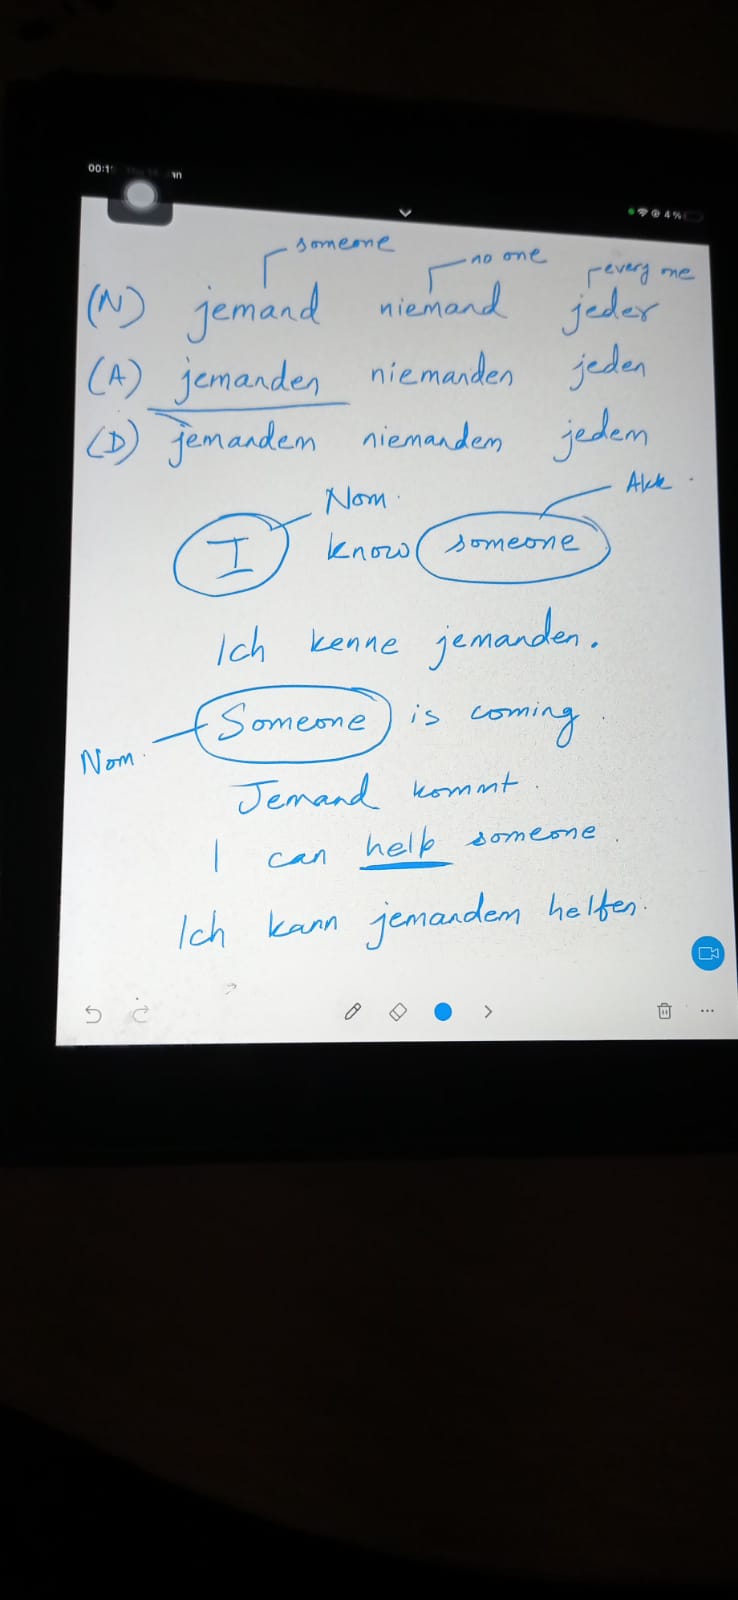 00:1
4%
someone
no one
every one
(N) jemand niemand jeder
(A) jemanden niemanden jeden
(D) jemandem niemandem jedem
Nom.
Akk.
I know someone
Ich kenne jemanden.
Someone is coming.
Nom.
Jemand kommt.
I can help someone.
Ich kann jemandem helfen.